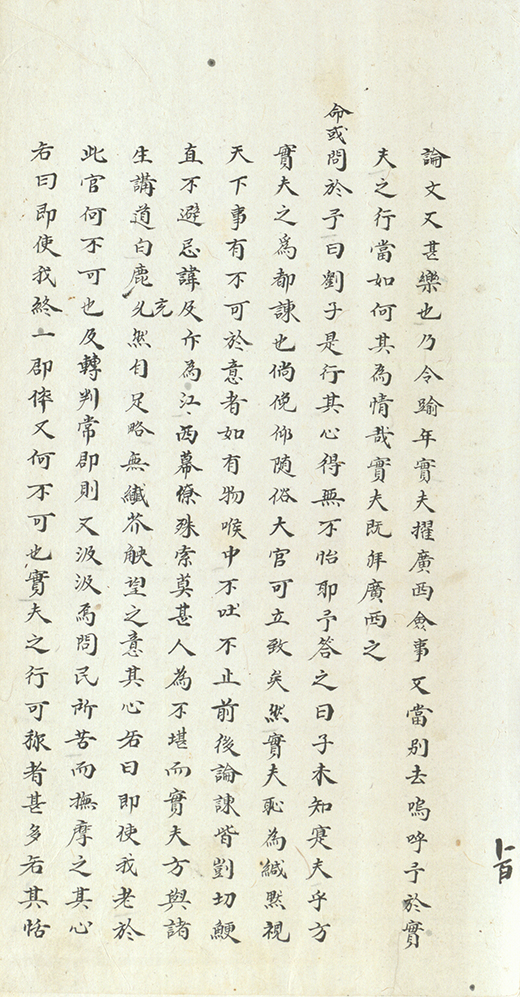 論文又甚樂也乃今踰年實夫擢廣西僉事又當别去嗚呼予於實
夫之行當如何其為情哉實夫既拜廣西之
命或問於予曰劉子是行其心得無不怡耶予答之曰子未知寔夫乎方
實夫之爲都諫也倘俛仰随俗大官可立致矣然實夫恥為緘黙視
天下事有不可於意者如有物喉中不吐不止前後論諫皆剴切鯁
直不避忌諱及斥為江西幕僚殊索莫甚人為不堪而實夫方與諸
生講道白鹿允充然自足略無纖芥觖望之意其心若曰即使我老於
此官何不可也及轉判常郡則又汲汲焉問民所苦而撫摩之其心
若曰即使我終一郡倅又何不可也實夫之行可称者甚多若其恬